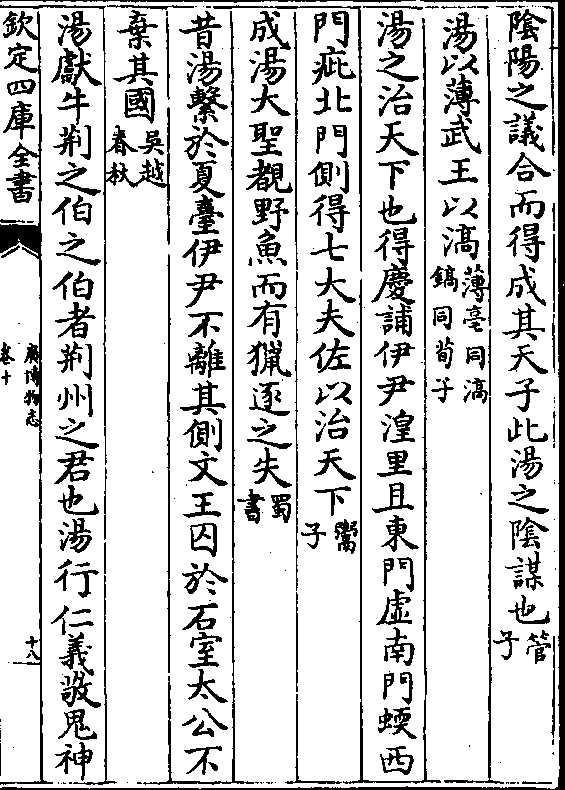 陰陽之議合而得成其天子此湯之陰謀也管子
湯以薄武王以滈薄亳同滈鎬同荀子
湯之治天下也得慶誧伊尹湟里且東門虛南門蝡西
門疵北門側得七大夫佐以治天下鬻子
成湯大聖覩野魚而有獵逐之失蜀書
昔湯繫於夏臺伊尹不離其側文王囚於石室太公不
棄其國吳越春秋
湯獻牛荆之伯之伯者荆州之君也湯行仁義敬鬼神
欽定四庫全書
廣博物志
卷十
十八